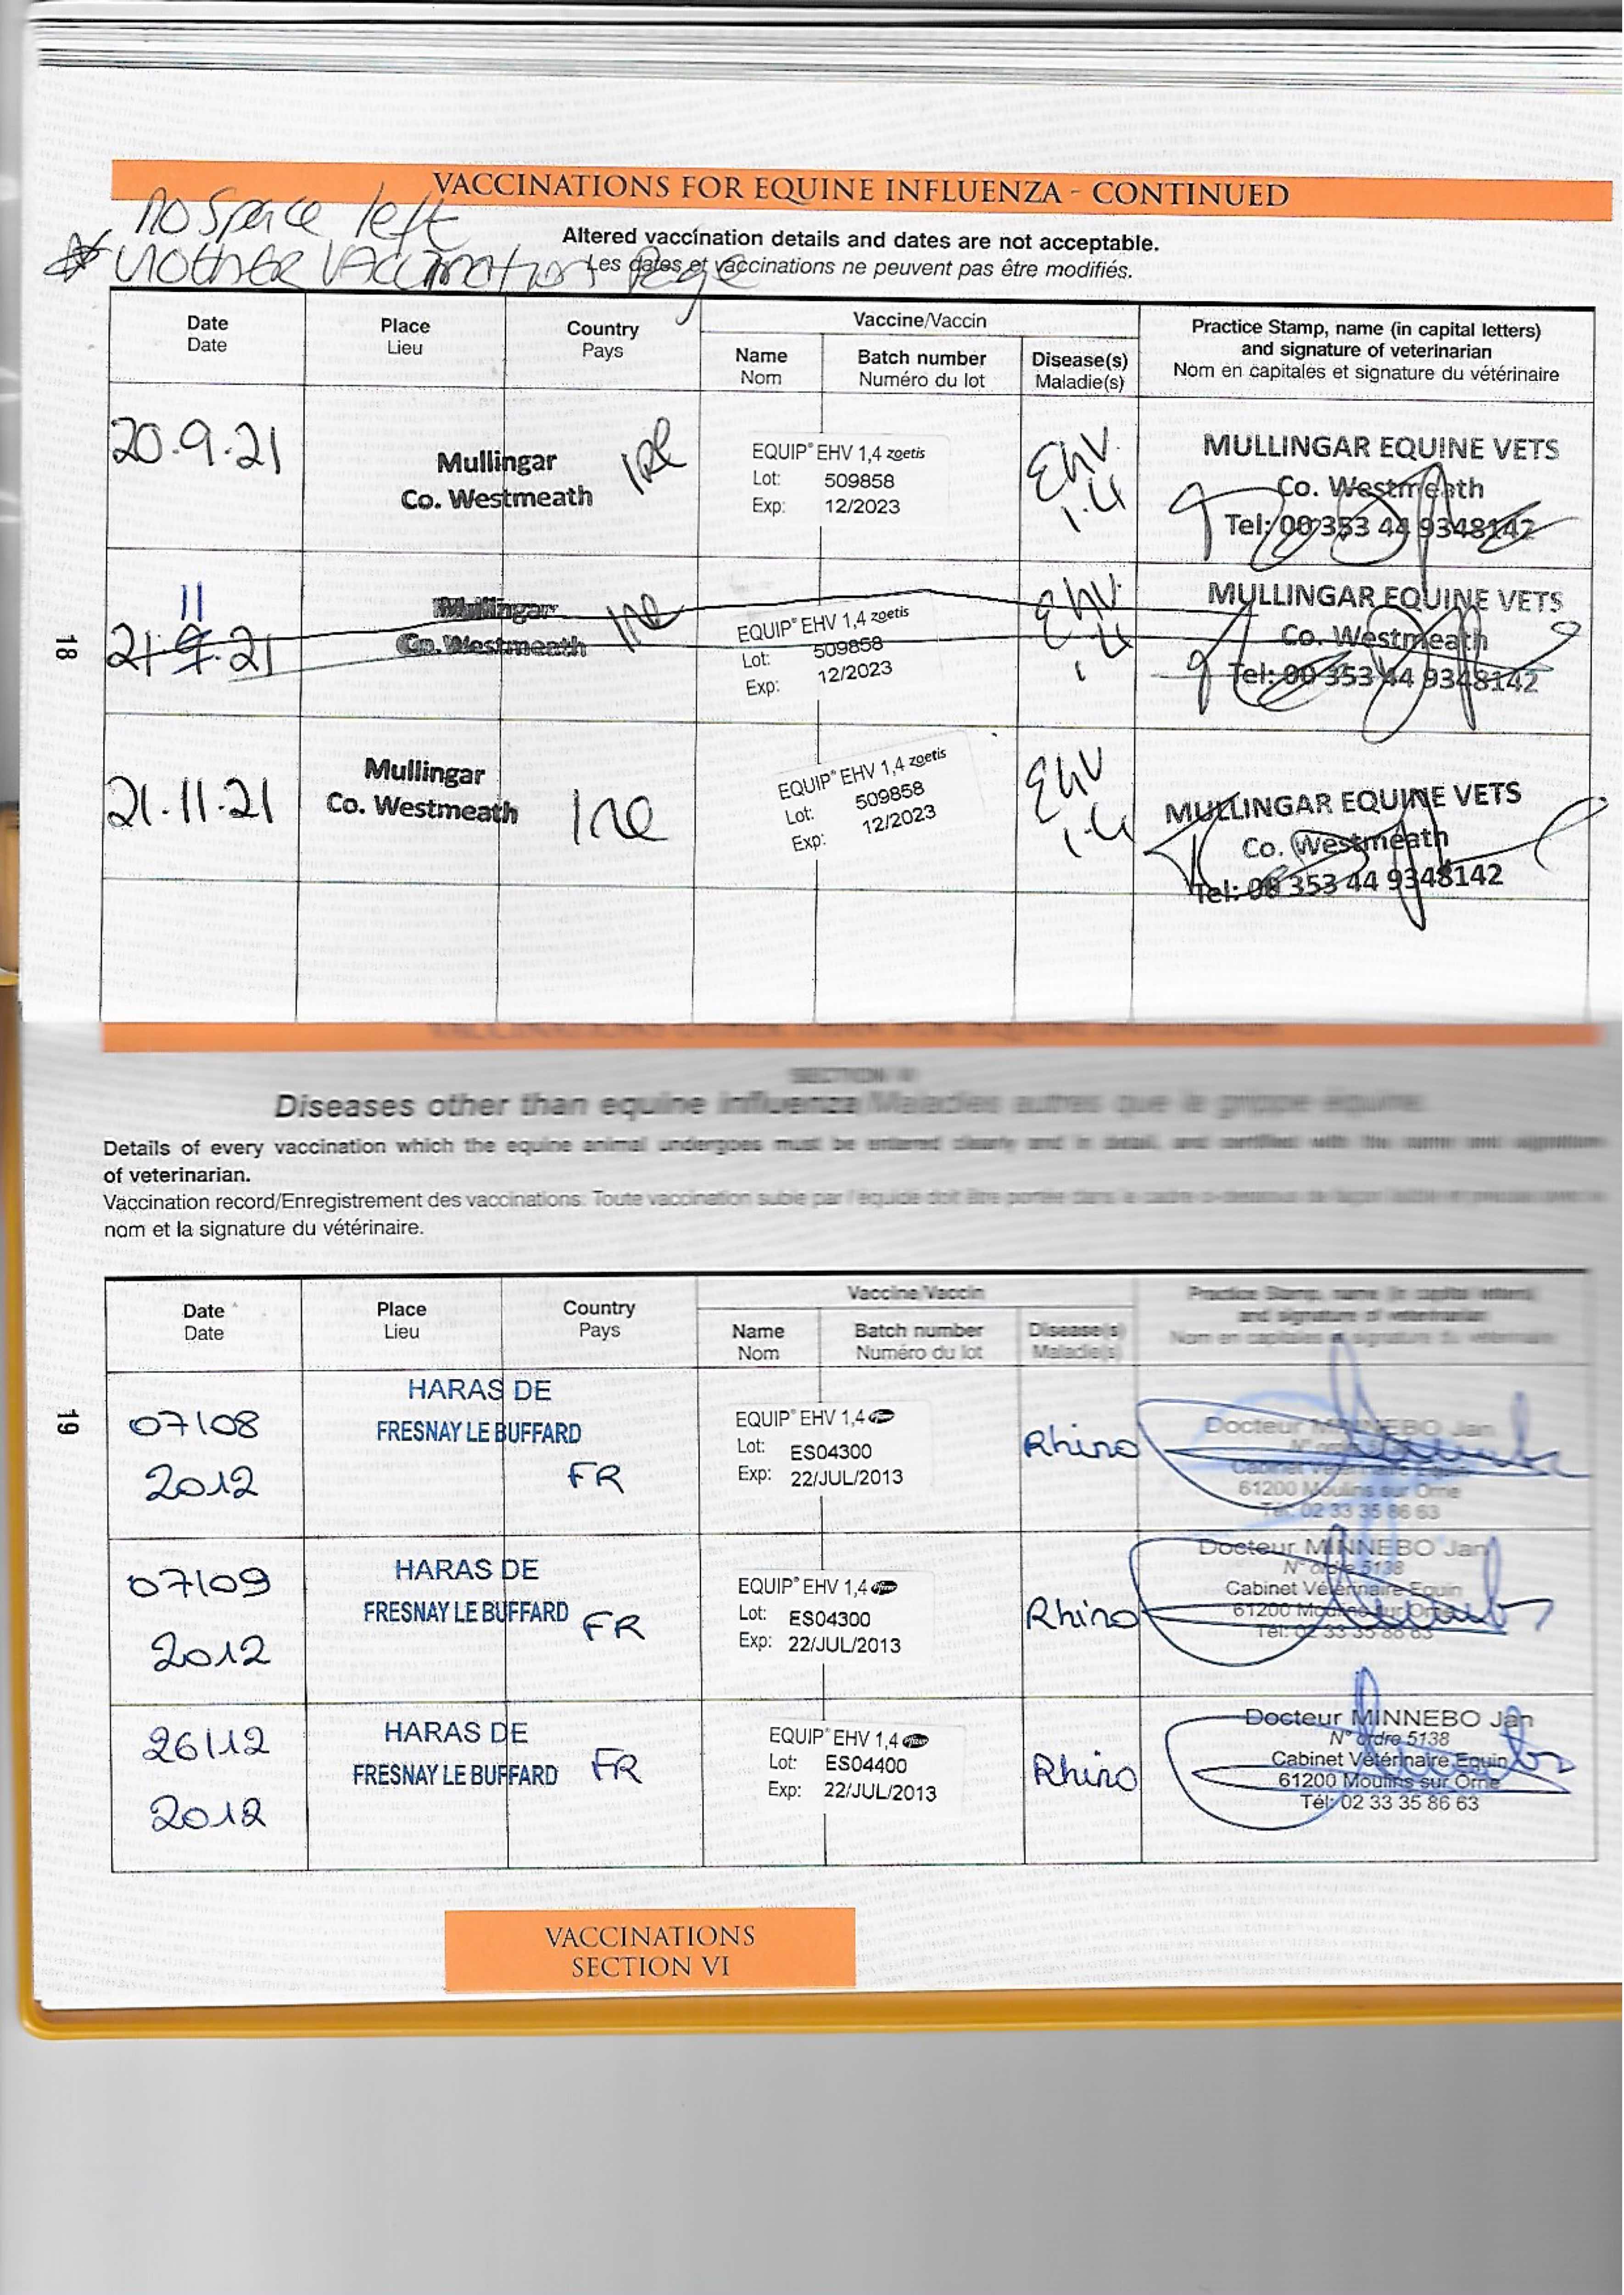 VACCINATIONS FOR EQUINE INFLUENZA - CONTINUED
no Space left
Altered vaccination details and dates are not acceptable.
Les dates et vaccinations ne peuvent pas être modifiés.
Vaccination Page
Date
Date
Place
Lieu
Country
Pays
Vaccine/Vaccin
Name
Nom
Batch number
Numéro du lot
Disease(s)
Maladie(s)
Practice Stamp, name (in capital letters)
and signature of veterinarian
Nom en capitales et signature du vétérinaire
20.9.21
Mullingar
Co. Westmeath
IRE
EQUIP® EHV 1,4 zoetis
Lot: 509858
Exp: 12/2023
EHV
1.4
MULLINGAR EQUINE VETS
Co. Westmeath
Tel: 00 353 44 9348142
11
21.9.21
Mullingar
Co. Westmeath
IRE
EQUIP® EHV 1,4 zoetis
Lot: 509858
Exp: 12/2023
EHV
1.4
MULLINGAR EQUINE VETS
Co. Westmeath
Tel: 00 353 44 9348142
18
21.11.21
Mullingar
Co. Westmeath
IRE
EQUIP® EHV 1,4 zoetis
Lot: 509858
Exp: 12/2023
EHV
1.4
MULLINGAR EQUINE VETS
Co. Westmeath
Tel: 00 353 44 9348142
Diseases other than equine influenza/Maladies autres que la grippe équine
Details of every vaccination which the equine animal undergoes must be entered clearly and in detail, and certified with the name and signature
of veterinarian.
Vaccination record/Enregistrement des vaccinations. Toute vaccination subie par l'équidé doit être portée dans le cadre ci-dessous de façon lisible et précise avec le
nom et la signature du vétérinaire.
Date
Date
Place
Lieu
Country
Pays
Vaccine/Vaccin
Name
Nom
Batch number
Numéro du lot
Disease(s)
Maladie(s)
Practice Stamp, name (in capital letters)
and signature of veterinarian
Nom en capitales et signature du vétérinaire
19
07/08
2012
HARAS DE
FRESNAY LE BUFFARD
FR
EQUIP® EHV 1,4 Pfizer
Lot: ES04300
Exp: 22/JUL/2013
Rhino
Docteur MINNEBO Jan
Cabinet Vétérinaire Equin
61200 Moulins sur Orne
Tél: 02 33 35 86 63
07/09
2012
HARAS DE
FRESNAY LE BUFFARD
FR
EQUIP® EHV 1,4 Pfizer
Lot: ES04300
Exp: 22/JUL/2013
Rhino
Docteur MINNEBO Jan
N° ordre 5138
Cabinet Vétérinaire Equin
61200 Moulins sur Orne
Tél: 02 33 35 86 63
26/12
2012
HARAS DE
FRESNAY LE BUFFARD
FR
EQUIP® EHV 1,4 Pfizer
Lot: ES04400
Exp: 22/JUL/2013
Rhino
Docteur MINNEBO Jan
N° ordre 5138
Cabinet Vétérinaire Equin
61200 Moulins sur Orne
Tél: 02 33 35 86 63
VACCINATIONS
SECTION VI